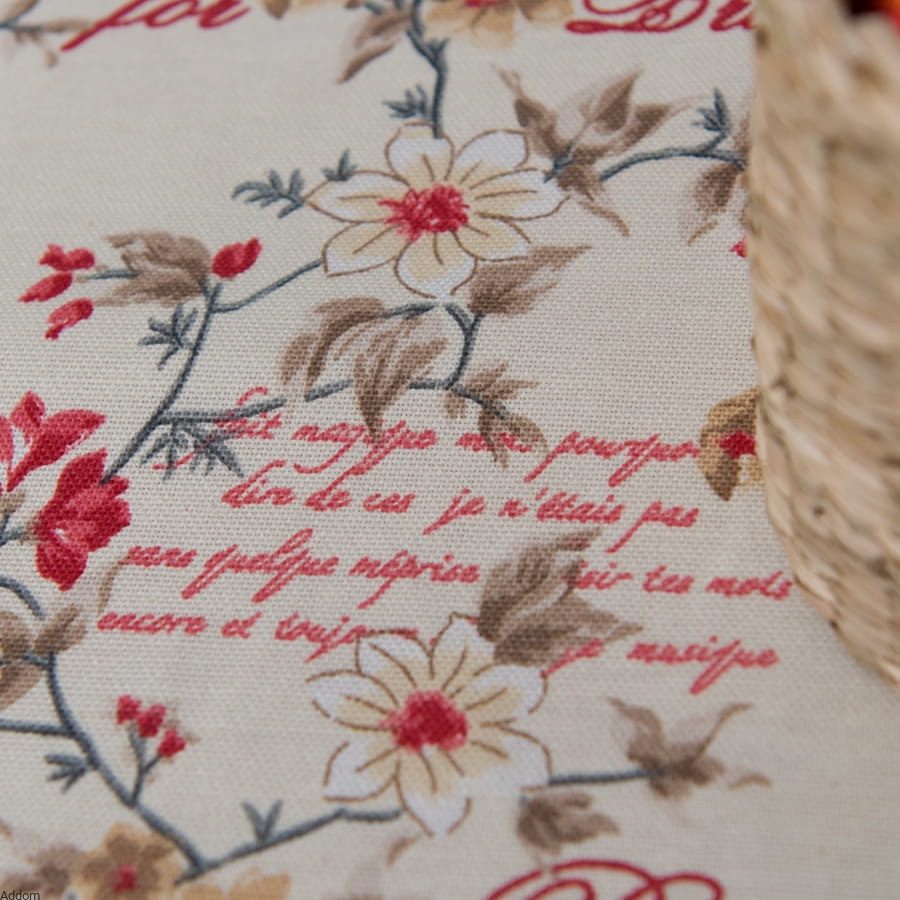 for
magique mais pourquoi
dire de ces je n'étais pas
sans quelque méprise tes mots
encore et je musique
Addom